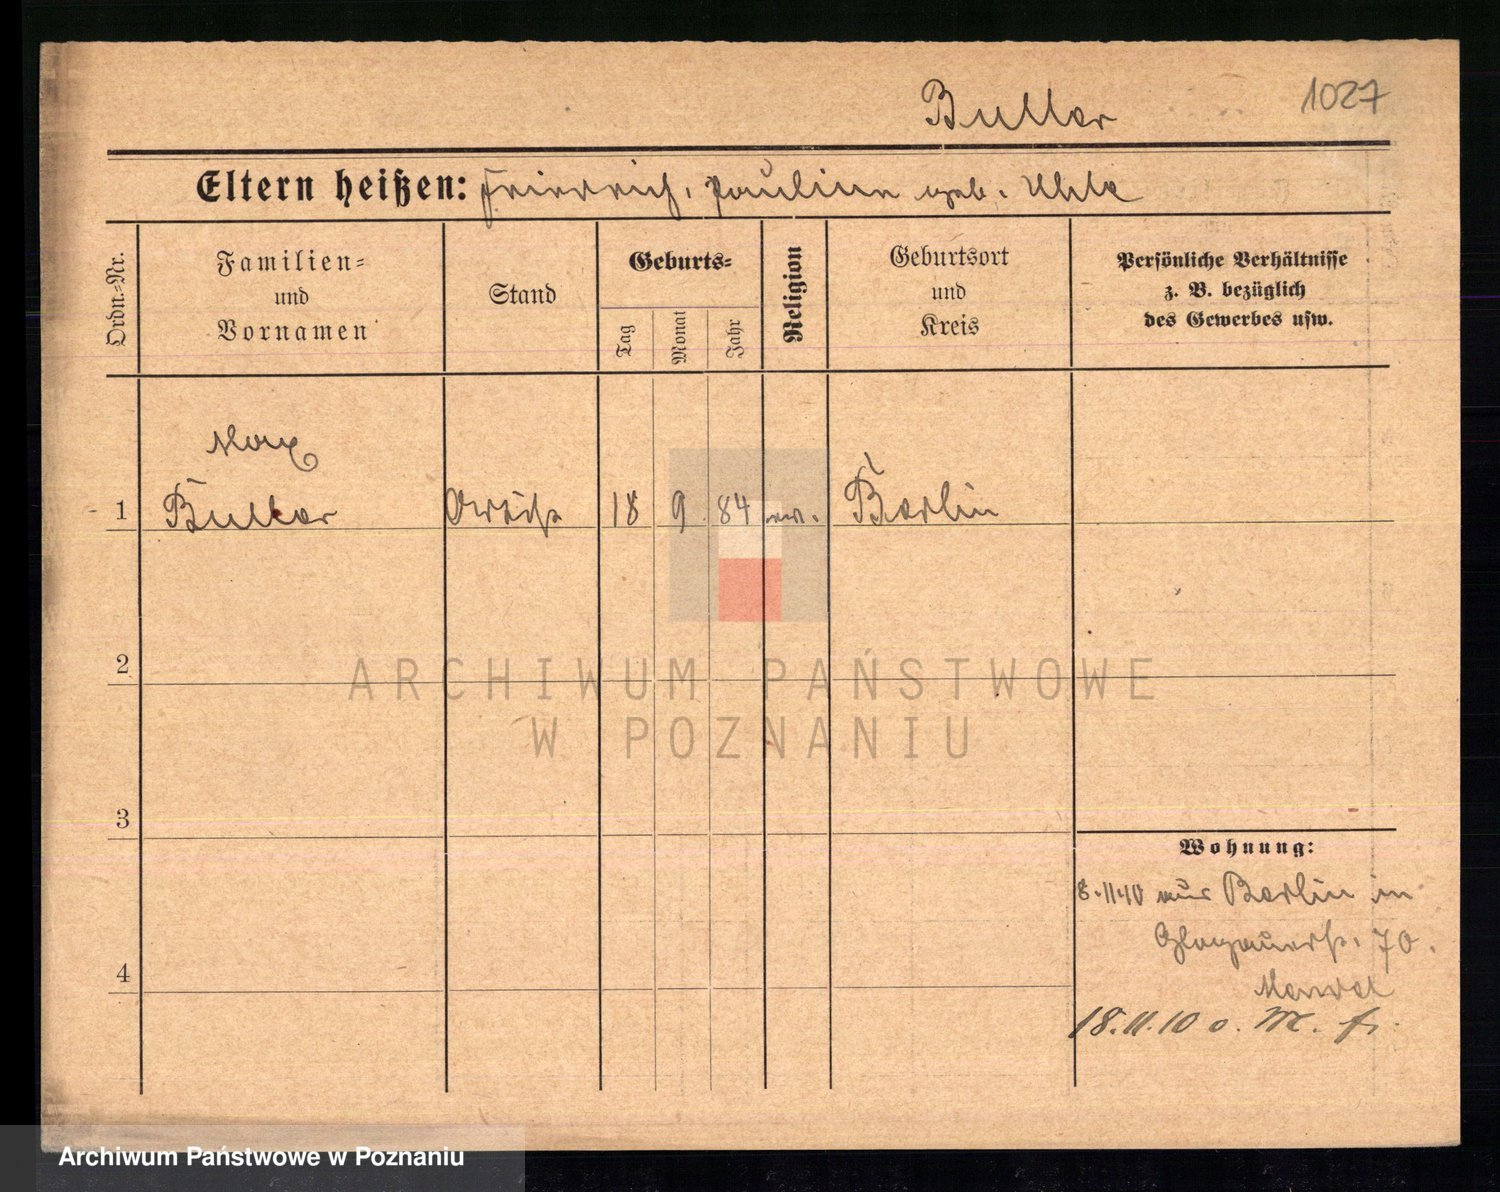 1027
Eltern heißen: Friedrich, Pauline geb. Uhle
Ordn.-Nr.
Familien-
und
Vornamen
Stand
Geburts-
Tag
Monat
Jahr
Religion
Geburtsort
und
Kreis
Persönliche Verhältnisse
z. B. bezüglich
des Gewerbes usw.
Max
1 18 9 84 ev. Berlin
2
3
4
Wohnung:
8.11.10 aus Berlin in
Glogauerst. 70.
18.11.10
ARCHIWUM PAŃSTWOWE
W POZNANIU
Archiwum Państwowe w Poznaniu